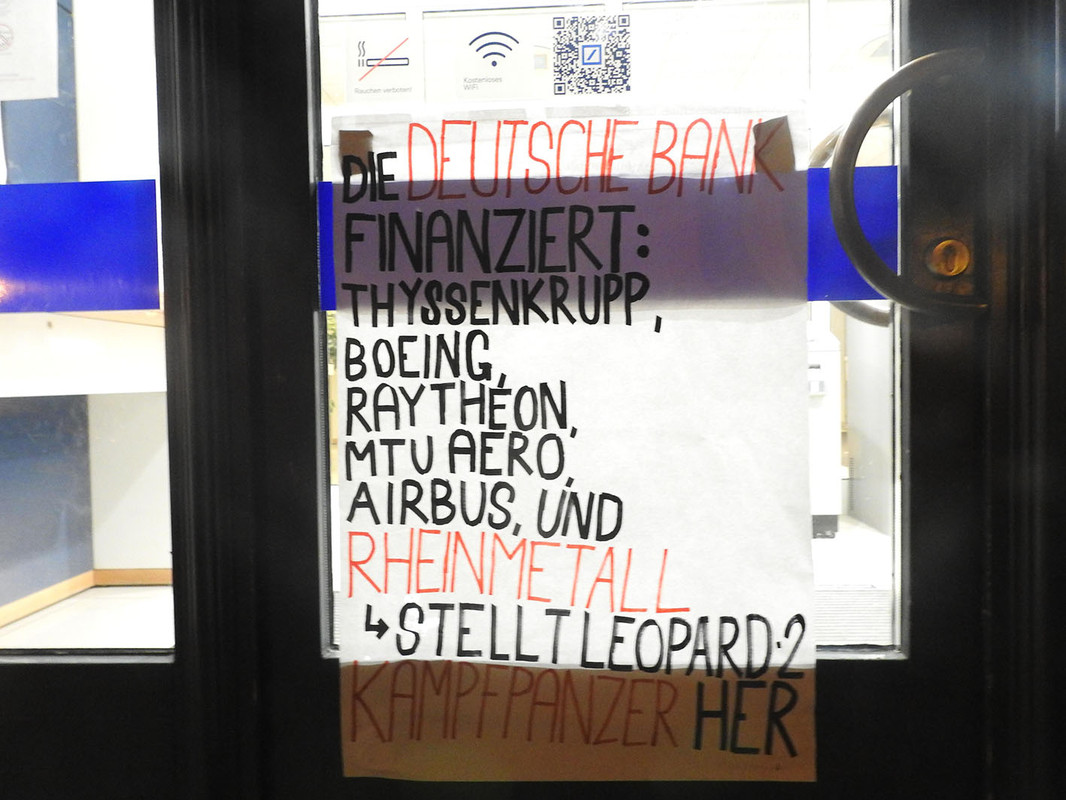 Rauchen verboten!
Kostenloses
WiFi
DIE DEUTSCHE BANK
FINANZIERT:
THYSSENKRUPP,
BOEING,
RAYTHEON,
MTU AERO,
AIRBUS, UND
RHEINMETALL
↳ STELLT LEOPARD·2
KAMPFPANZER HER